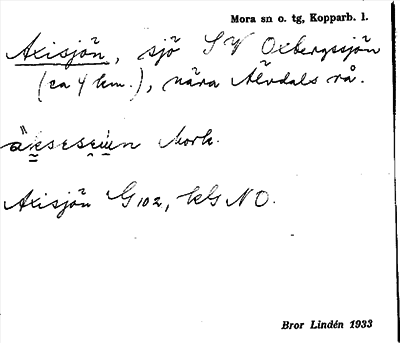 Mora sn o. tg, Kopparb. l.
Axisjön, sjö SV Oxbergssjön
(ca 4 km.), nära Älvdals rå.
Mork.
Axisjön G102, kG NO.
Bror Lindén 1933